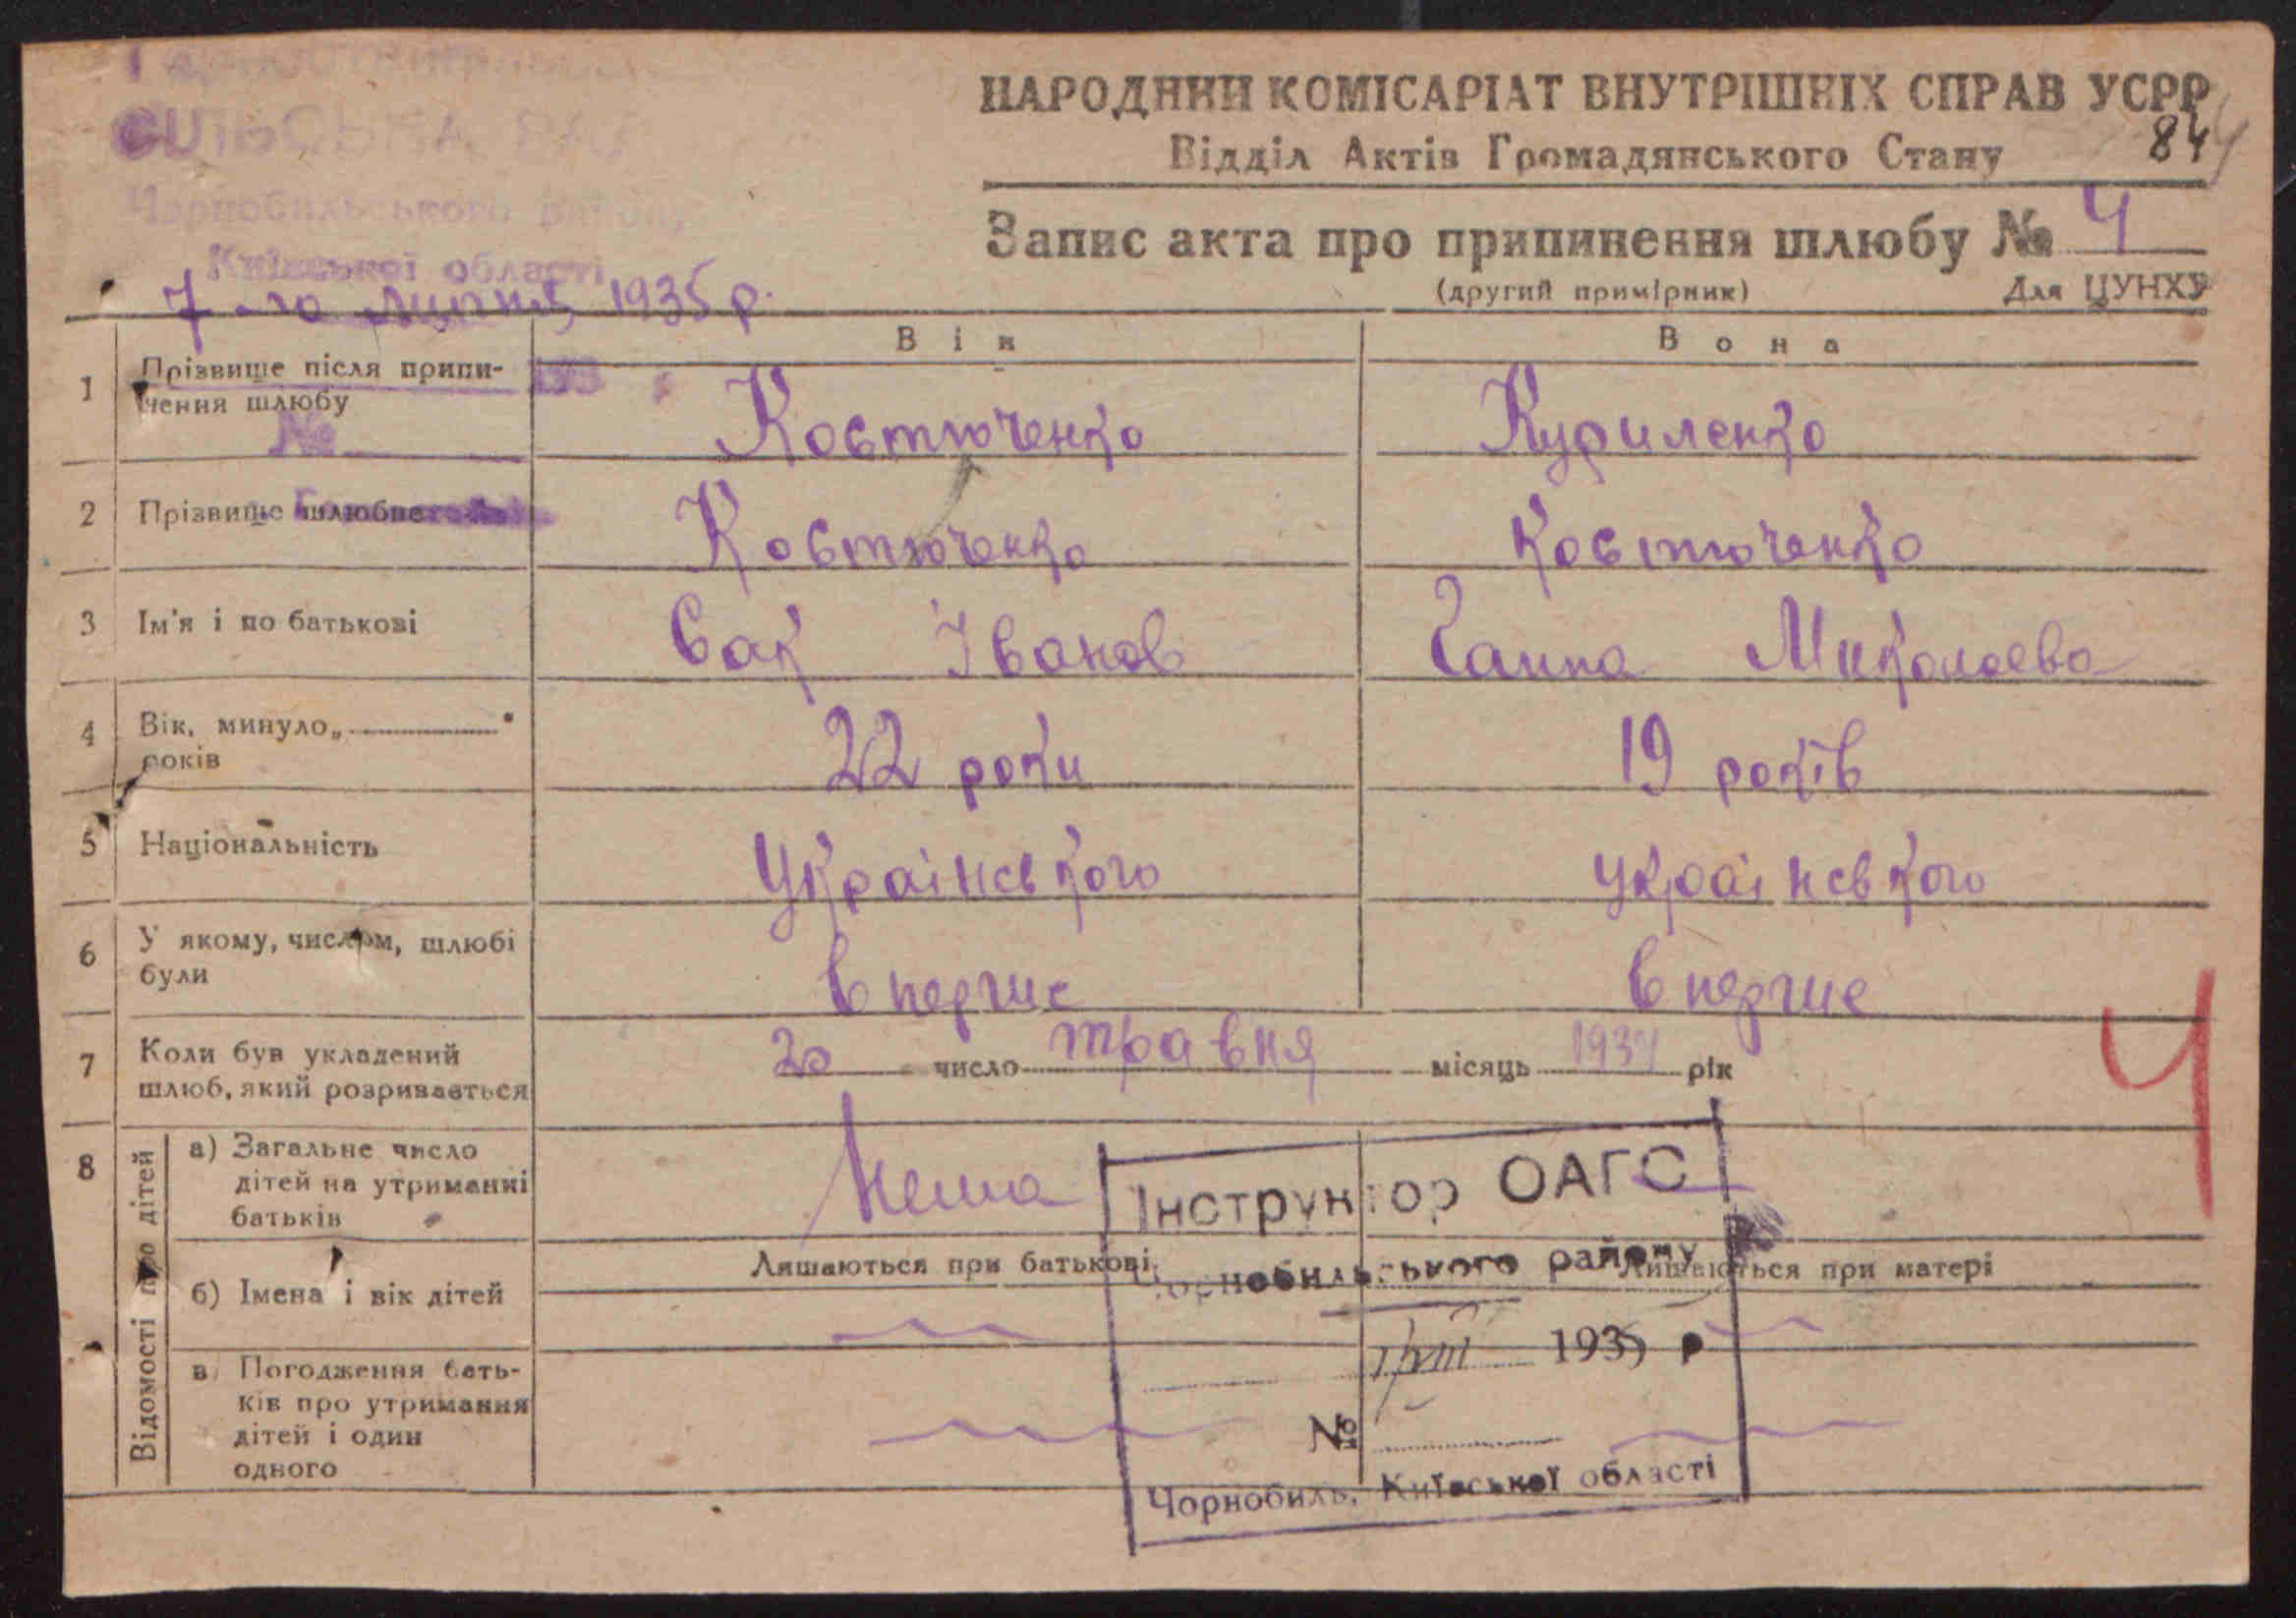 СІЛЬСЬКА РАД
Чорнобильського району,
Київської області
7-го липня 1935 р.
НАРОДНИЙ КОМІСАРІАТ ВНУТРІШНІХ СПРАВ УСРР
84
Відділ Актів Громадянського Стану
Запис акта про припинення шлюбу № 4
(другий примірник) Для ЦУНХУ
Він Вона
1 Прізвище після припинення шлюбу Костюченко Куриленко
№
2 Прізвище шлюбне Костюченко Костюченко
3 Ім'я і по батькові Сак Іванов Ганна Миколаєва
4 Вік, минуло „ років 22 роки 19 років
5 Національність Українського Українського
6 У якому, числом, шлюбі були Вперше Вперше
7 Коли був укладений шлюб, який розривається 20 число травня місяць 1934 рік
4
8 Відомості про дітей
а) Загальне число дітей на утриманні батьків Нема
Лишаються при батькові Лишаються при матері
б) Імена і вік дітей
в) Погодження батьків про утримання дітей і один одного
Інструктор ОАГС
Чорнобильського району
1935 р
№
Чорнобиль, Київської області